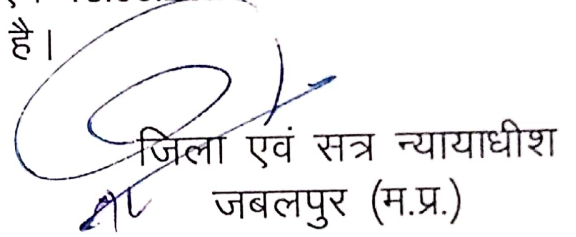 है।
जिला एवं सत्र न्यायाधीश
जबलपुर (म.प्र.)